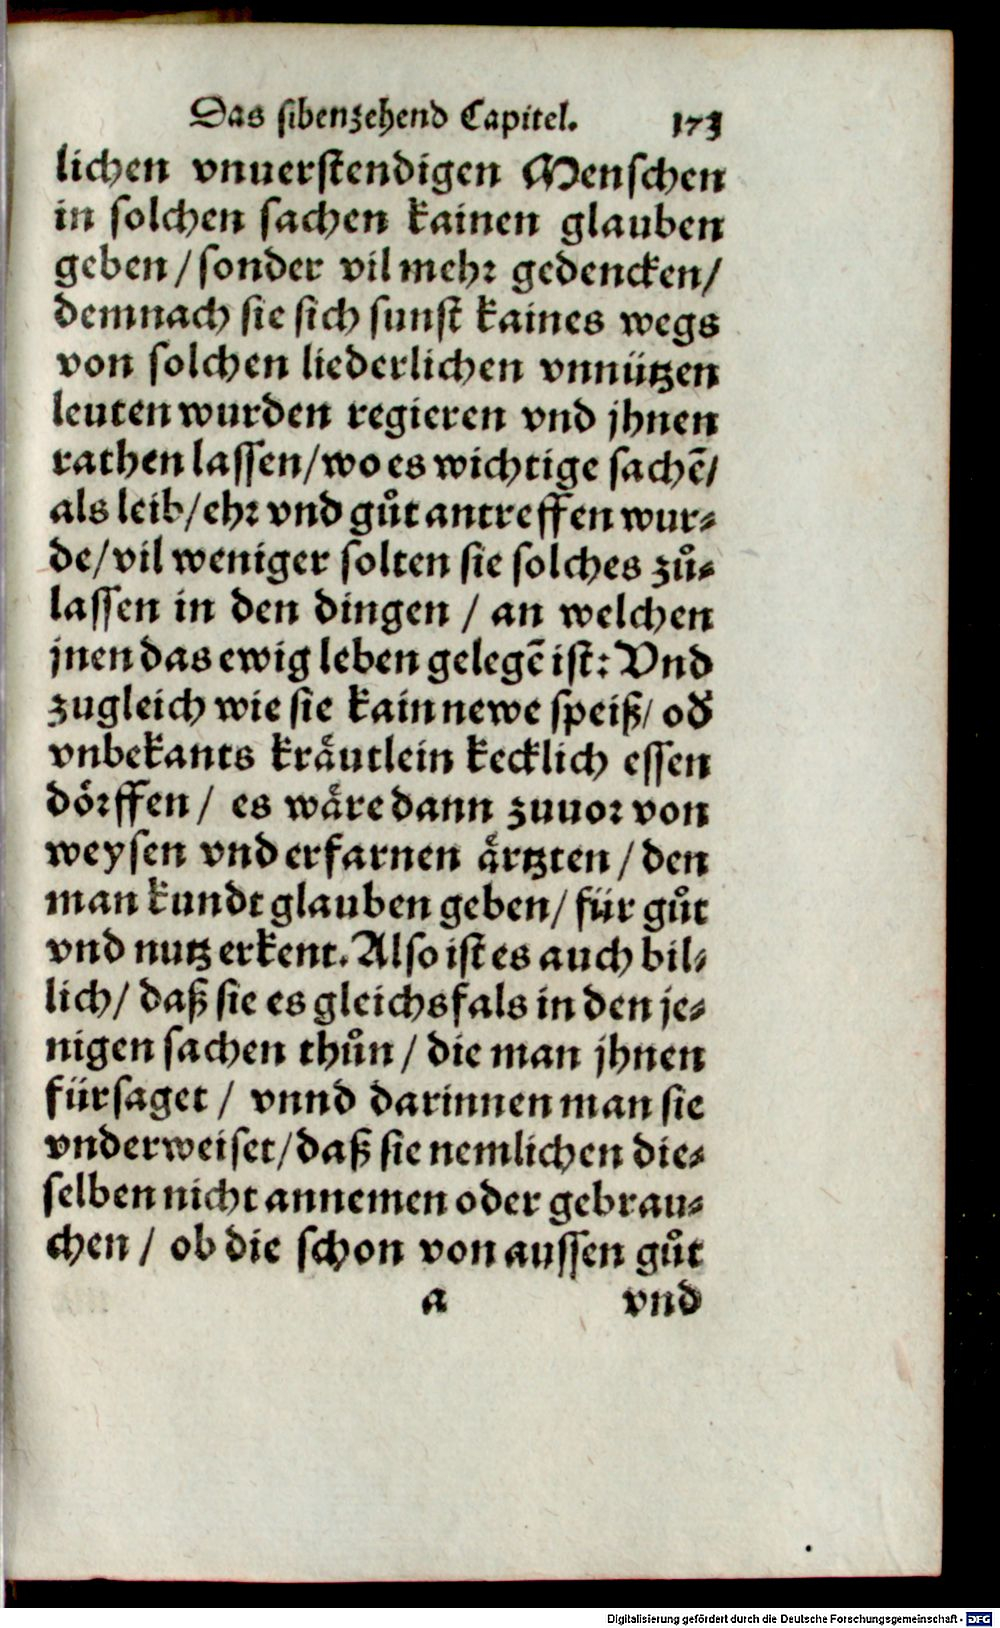 Das sibenzehend Capitel. 173
lichen vnuerstendigen Menschen
in solchen sachen kainen glauben
geben / sonder vil mehr gedencken /
demnach sie sich sunst kaines wegs
von solchen liederlichen vnnützen
leuten wurden regieren vnd jhnen
rathen lassen / wo es wichtige sachē /
als leib / ehr vnd gůt antreffen wur-
de / vil weniger solten sie solches zů-
lassen in den dingen / an welchen
jnen das ewig leben gelegē ist: Vnd
zugleich wie sie kain newe speiß / od̄
vnbekants kraͤutlein kecklich essen
doͤrffen / es waͤre dann zuuor von
weysen vnd erfarnen aͤrtzten / den
man kundt glauben geben / für gůt
vnd nutz erkent. Also ist es auch bil-
lich / daß sie es gleichsfals in den je-
nigen sachen thůn / die man jhnen
fürsaget / vnnd darinnen man sie
vnderweiset / daß sie nemlichen die-
selben nicht annemen oder gebrau-
chen / ob die schon von aussen gůt
a vnd
Digitalisierung gefördert durch die Deutsche Forschungsgemeinschaft - DFG